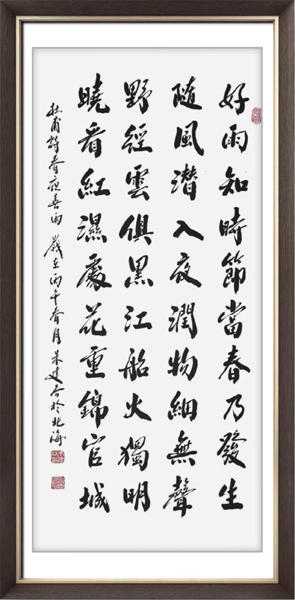 好雨知時節當春乃發生
隨風潛入夜潤物細無聲
野徑雲俱黑江船火獨明
曉看紅濕處花重錦官城
杜甫詩春夜喜雨 歲在丙午春月朱建合於北海